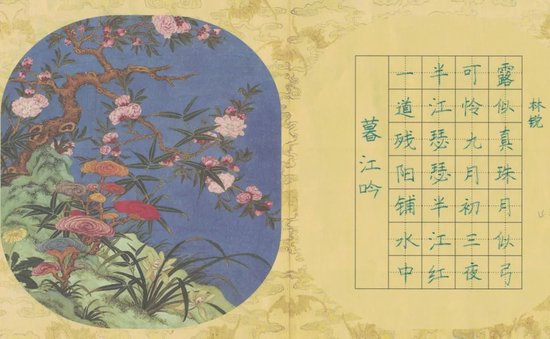 暮江吟
一道残阳铺水中
半江瑟瑟半江红
可怜九月初三夜
露似真珠月似弓
林锐